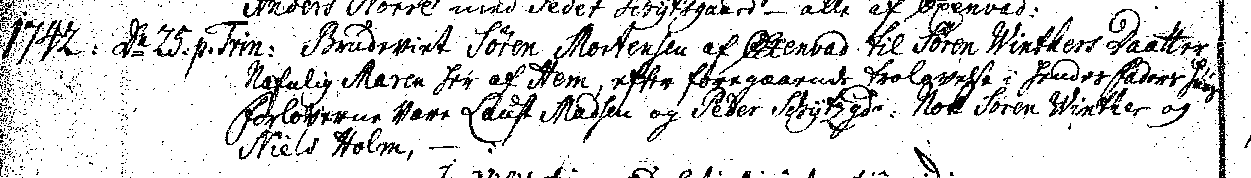 Anders Norre med Peder Schytsgaard – alle af Oxenvad.
1742. Dn 25. p. Trin: Brudeviet Søren Mortensen af Oxenvad til Søren Winthers Daatter
Nafnlig Maren her af Hem, efter foregaaende trolovelse i hendes Faders huus
Forloverne vare Laust Madsen og Peder Schytzgd: Nok Søren Winther og
Niels Holm, –